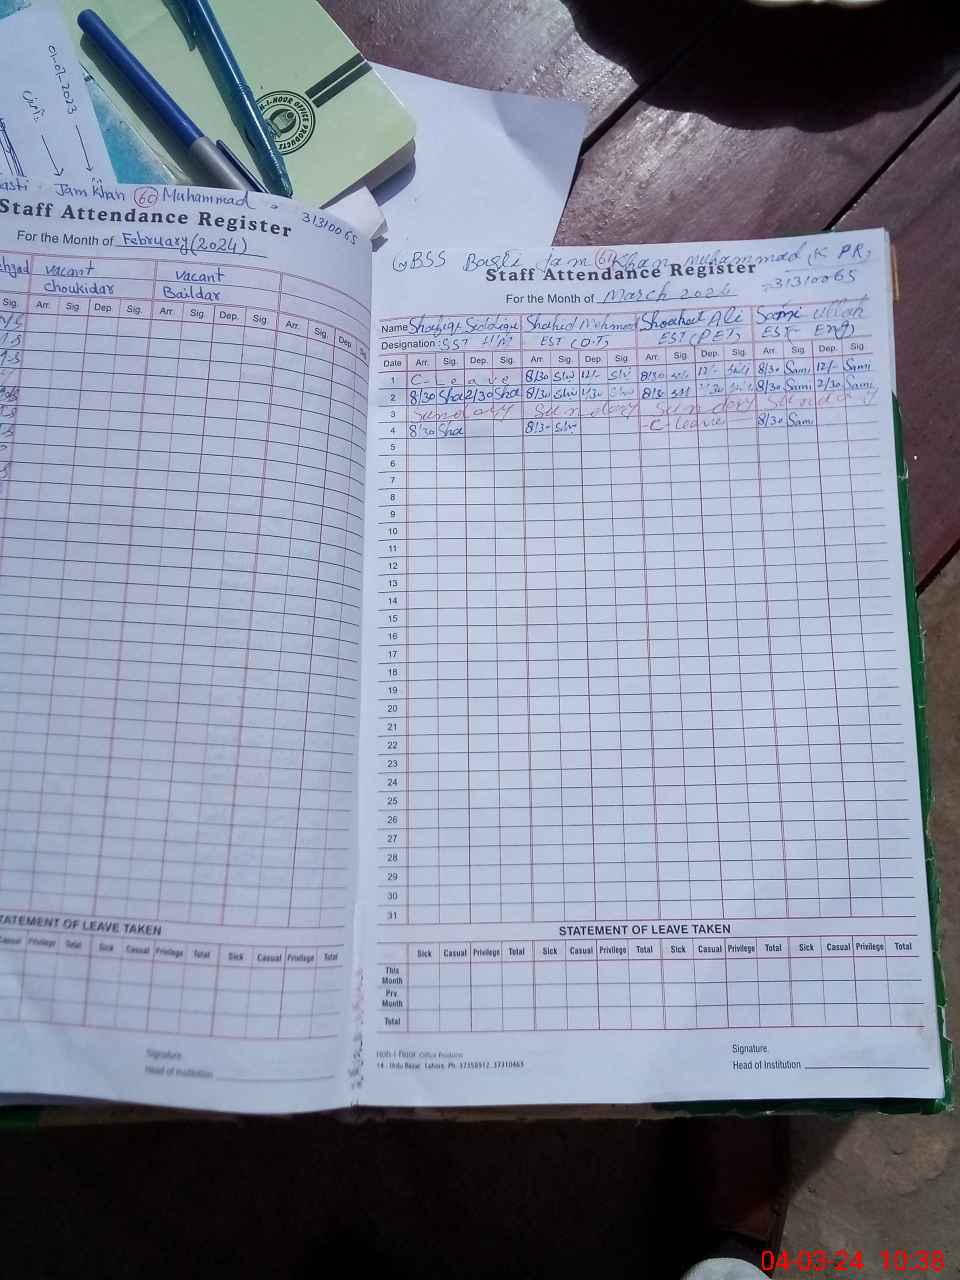 01-07-2023
1-HOUR OFFICE PRODUCTS
asti. Jam Khan (60) Muhammad
31310065
Staff Attendance Register
For the Month of February (2024)
vacant vacant
choukidar Baildar
Sig. Arr. Sig. Dep. Sig. Arr. Sig. Dep. Sig. Arr. Sig. Dep. Sig.
TATEMENT OF LEAVE TAKEN
Casual Privilege Total Sick Casual Privilege Total Sick Casual Privilege Total
Signature.
Head of Institution
GBSS Bagli Jam (61) Khan Muhammad (K PR)
31310065
Staff Attendance Register
For the Month of March 2024
Name Shafiqe Siddique Shahid Mehmood Shoukat Ali Sami ullah
Designation: SST EST (D.T) EST (PET) EST- Eng
Date Arr. Sig. Dep. Sig. Arr Sig. Dep. Sig. Arr. Sig. Dep. Sig. Arr. Sig Dep. Sig.
1 C-Leave 8/30 12/- 8/30 12/- 8/30 Sami 12/- Sami
2 8/30 Sha 2/30 Sha 8/30 8/30 8/30 Sami 2/30 Sami
3 Sunday Sunday Sunday Sunday
4 8/30 Sha 8/30 -C-leave- 8/30 Sami
5
6
7
8
9
10
11
12
13
14
15
16
17
18
19
20
21
22
23
24
25
26
27
28
29
30
31
STATEMENT OF LEAVE TAKEN
Sick Casual Privilege Total Sick Casual Privilege Total Sick Casual Privilege Total Sick Casual Privilege Total
This Month
Prv. Month
Total
Office Products
14 - Urdu Bazar, Lahore. Ph: 37358912, 37310465
Signature.
Head of Institution
04-03-24 10:38